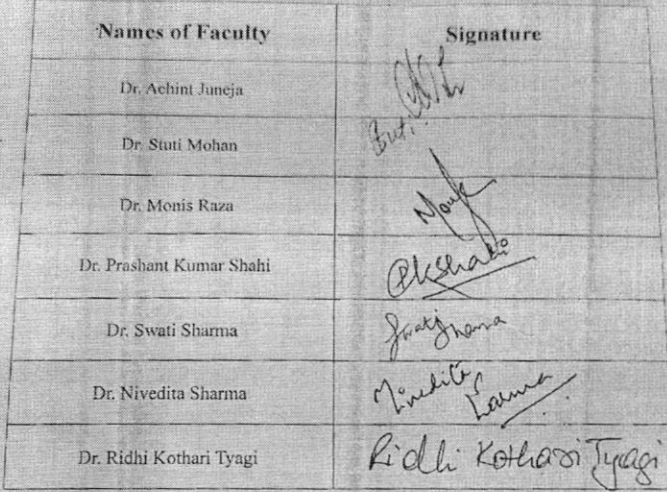 Names of Faculty Signature
Dr. Achint Juneja
Dr. Stuti Mohan
Dr. Monis Raza
Dr. Prashant Kumar Shahi Pkshahi
Dr. Swati Sharma Swati Sharma
Dr. Nivedita Sharma Nivedita Sharma
Dr. Ridhi Kothari Tyagi Ridhi Kothari Tyagi